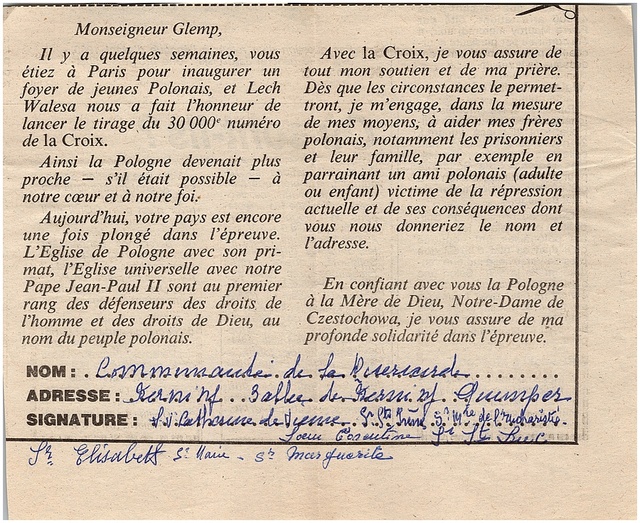 Monseigneur Glemp,
Il y a quelques semaines, vous
étiez à Paris pour inaugurer un
foyer de jeunes Polonais, et Lech
Walesa nous a fait l'honneur de
lancer le tirage du 30 000e numéro
de la Croix.
Ainsi la Pologne devenait plus
proche — s'il était possible — à
notre cœur et à notre foi.
Aujourd'hui, votre pays est encore
une fois plongé dans l'épreuve.
L'Eglise de Pologne avec son pri-
mat, l'Eglise universelle avec notre
Pape Jean-Paul II sont au premier
rang des défenseurs des droits de
l'homme et des droits de Dieu, au
nom du peuple polonais.
Avec la Croix, je vous assure de
tout mon soutien et de ma prière.
Dès que les circonstances le permet-
tront, je m'engage, dans la mesure
de mes moyens, à aider mes frères
polonais, notamment les prisonniers
et leur famille, par exemple en
parrainant un ami polonais (adulte
ou enfant) victime de la répression
actuelle et de ses conséquences dont
vous nous donneriez le nom et
l'adresse.
En confiant avec vous la Pologne
à la Mère de Dieu, Notre-Dame de
Czestochowa, je vous assure de ma
profonde solidarité dans l'épreuve.
NOM : Communauté de la Miséricorde
ADRESSE : Kerninf de Kerninf Quimper
SIGNATURE : Catherine de Sr Mie de l'Eucharistie
Soeur Sr St Luc
Sr Elisabeth Sr Marie - Sr Marguerite